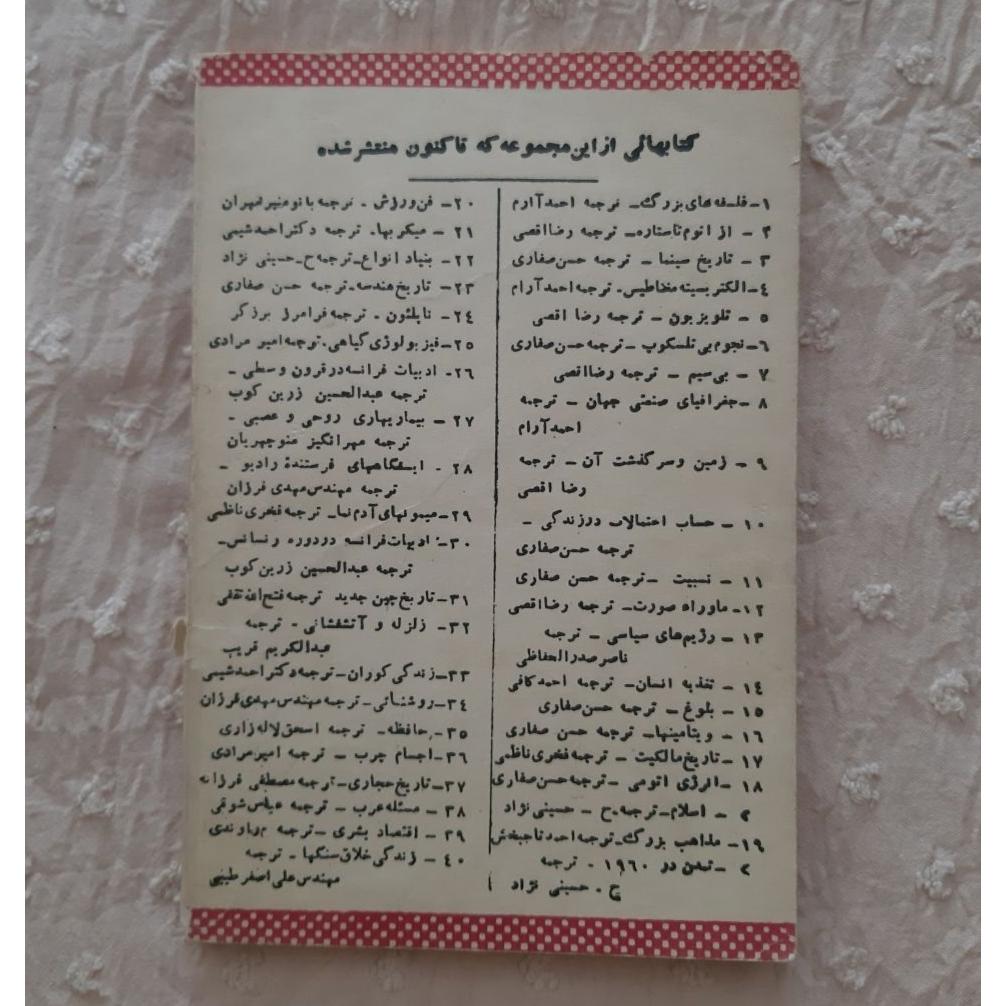 کتابهائی از این مجموعه که تاکنون منتشر شده
۱- فلسفه های بزرگ- ترجمه احمد آرام
۲ - از اتوم تا ستاره- ترجمه رضا اقصی
۳ - تاریخ سینما - ترجمه حسن صفاری
٤- الکتریسیته مغناطیس- ترجمه احمد آرام
۵ - تلویزیون - ترجمه رضا اقصی
۶- نجوم بی تلسکوپ - ترجمه حسن صفاری
۷ - بی سیم - ترجمه رضا اقصی
۸ - جغرافیای صنعتی جهان - ترجمه
احمد آرام
۹ - زمین و سرگذشت آن - ترجمه
رضا اقصی
۱۰ - حساب احتمالات در زندگی -
ترجمه حسن صفاری
۱۱ - نسبیت - ترجمه حسن صفاری
۱۲- ماوراء صورت- ترجمه رضا اقصی
۱۳ - رژیم های سیاسی - ترجمه
ناصر صدرالحفاظی
۱٤ - تغذیه انسان- ترجمه احمد کافی
۱۵ - بلوغ - ترجمه حسن صفاری
۱۶ - ویتامینها- ترجمه حسن صفاری
۱۷ - تاریخ مالکیت - ترجمه فخری ناظمی
۱۸ - انرژی اتومی - ترجمه حسن صفاری
۲ - اسلام- ترجمه ح - حسینی نژاد
۱۹- مذاهب بزرگ- ترجمه احمد تاجبخش
۲ - تمدن در ۱۹۶۰ - ترجمه
ح . حسینی نژاد
۲۰- فن ورزش - ترجمه بانو منیر مهران
۲۱ - میکربها- ترجمه دکتر احمد شیمی
۲۲- بنیاد انواع- ترجمه ح- حسینی نژاد
۲۳- تاریخ هندسه- ترجمه حسن صفاری
۲٤- ناپلئون - ترجمه فرامرز برزگر
۲۵- فیزیولوژی گیاهی- ترجمه امیر مرادی
۲۶- ادبیات فرانسه در قرون وسطی -
ترجمه عبدالحسین زرین کوب
۲۷ - بیماریهای روحی و عصبی -
ترجمه مهرانگیز منوچهریان
۲۸ - ایستگاههای فرستندهٔ رادیو -
ترجمه مهندس مهدی فرزان
۲۹- میمونهای آدم نما- ترجمه فخری ناظمی
۳۰- ادبیات فرانسه در دوره رنسانس-
ترجمه عبدالحسین زرین کوب
۳۱- تاریخ چین جدید ترجمه فتح الله ثقفی
۳۲- زلزله و آتشفشانی - ترجمه
عبدالکریم قریب
۳۳- زندگی کوران- ترجمه دکتر احمد شیمی
۳٤- روشنائی- ترجمه مهندس مهدی فرزان
۳۵- حافظه- ترجمه اسحق لاله زاری
۳۶- اجسام چرب - ترجمه امیر مرادی
۳۷- تاریخ حجاری- ترجمه مصطفی فرزانه
۳۸ - مسئله عرب - ترجمه عباس شوقی
۳۹ - اقتصاد بشری - ترجمه
٤۰ - زندگی خلاق سنگها - ترجمه
مهندس علی اصغر طبیبی